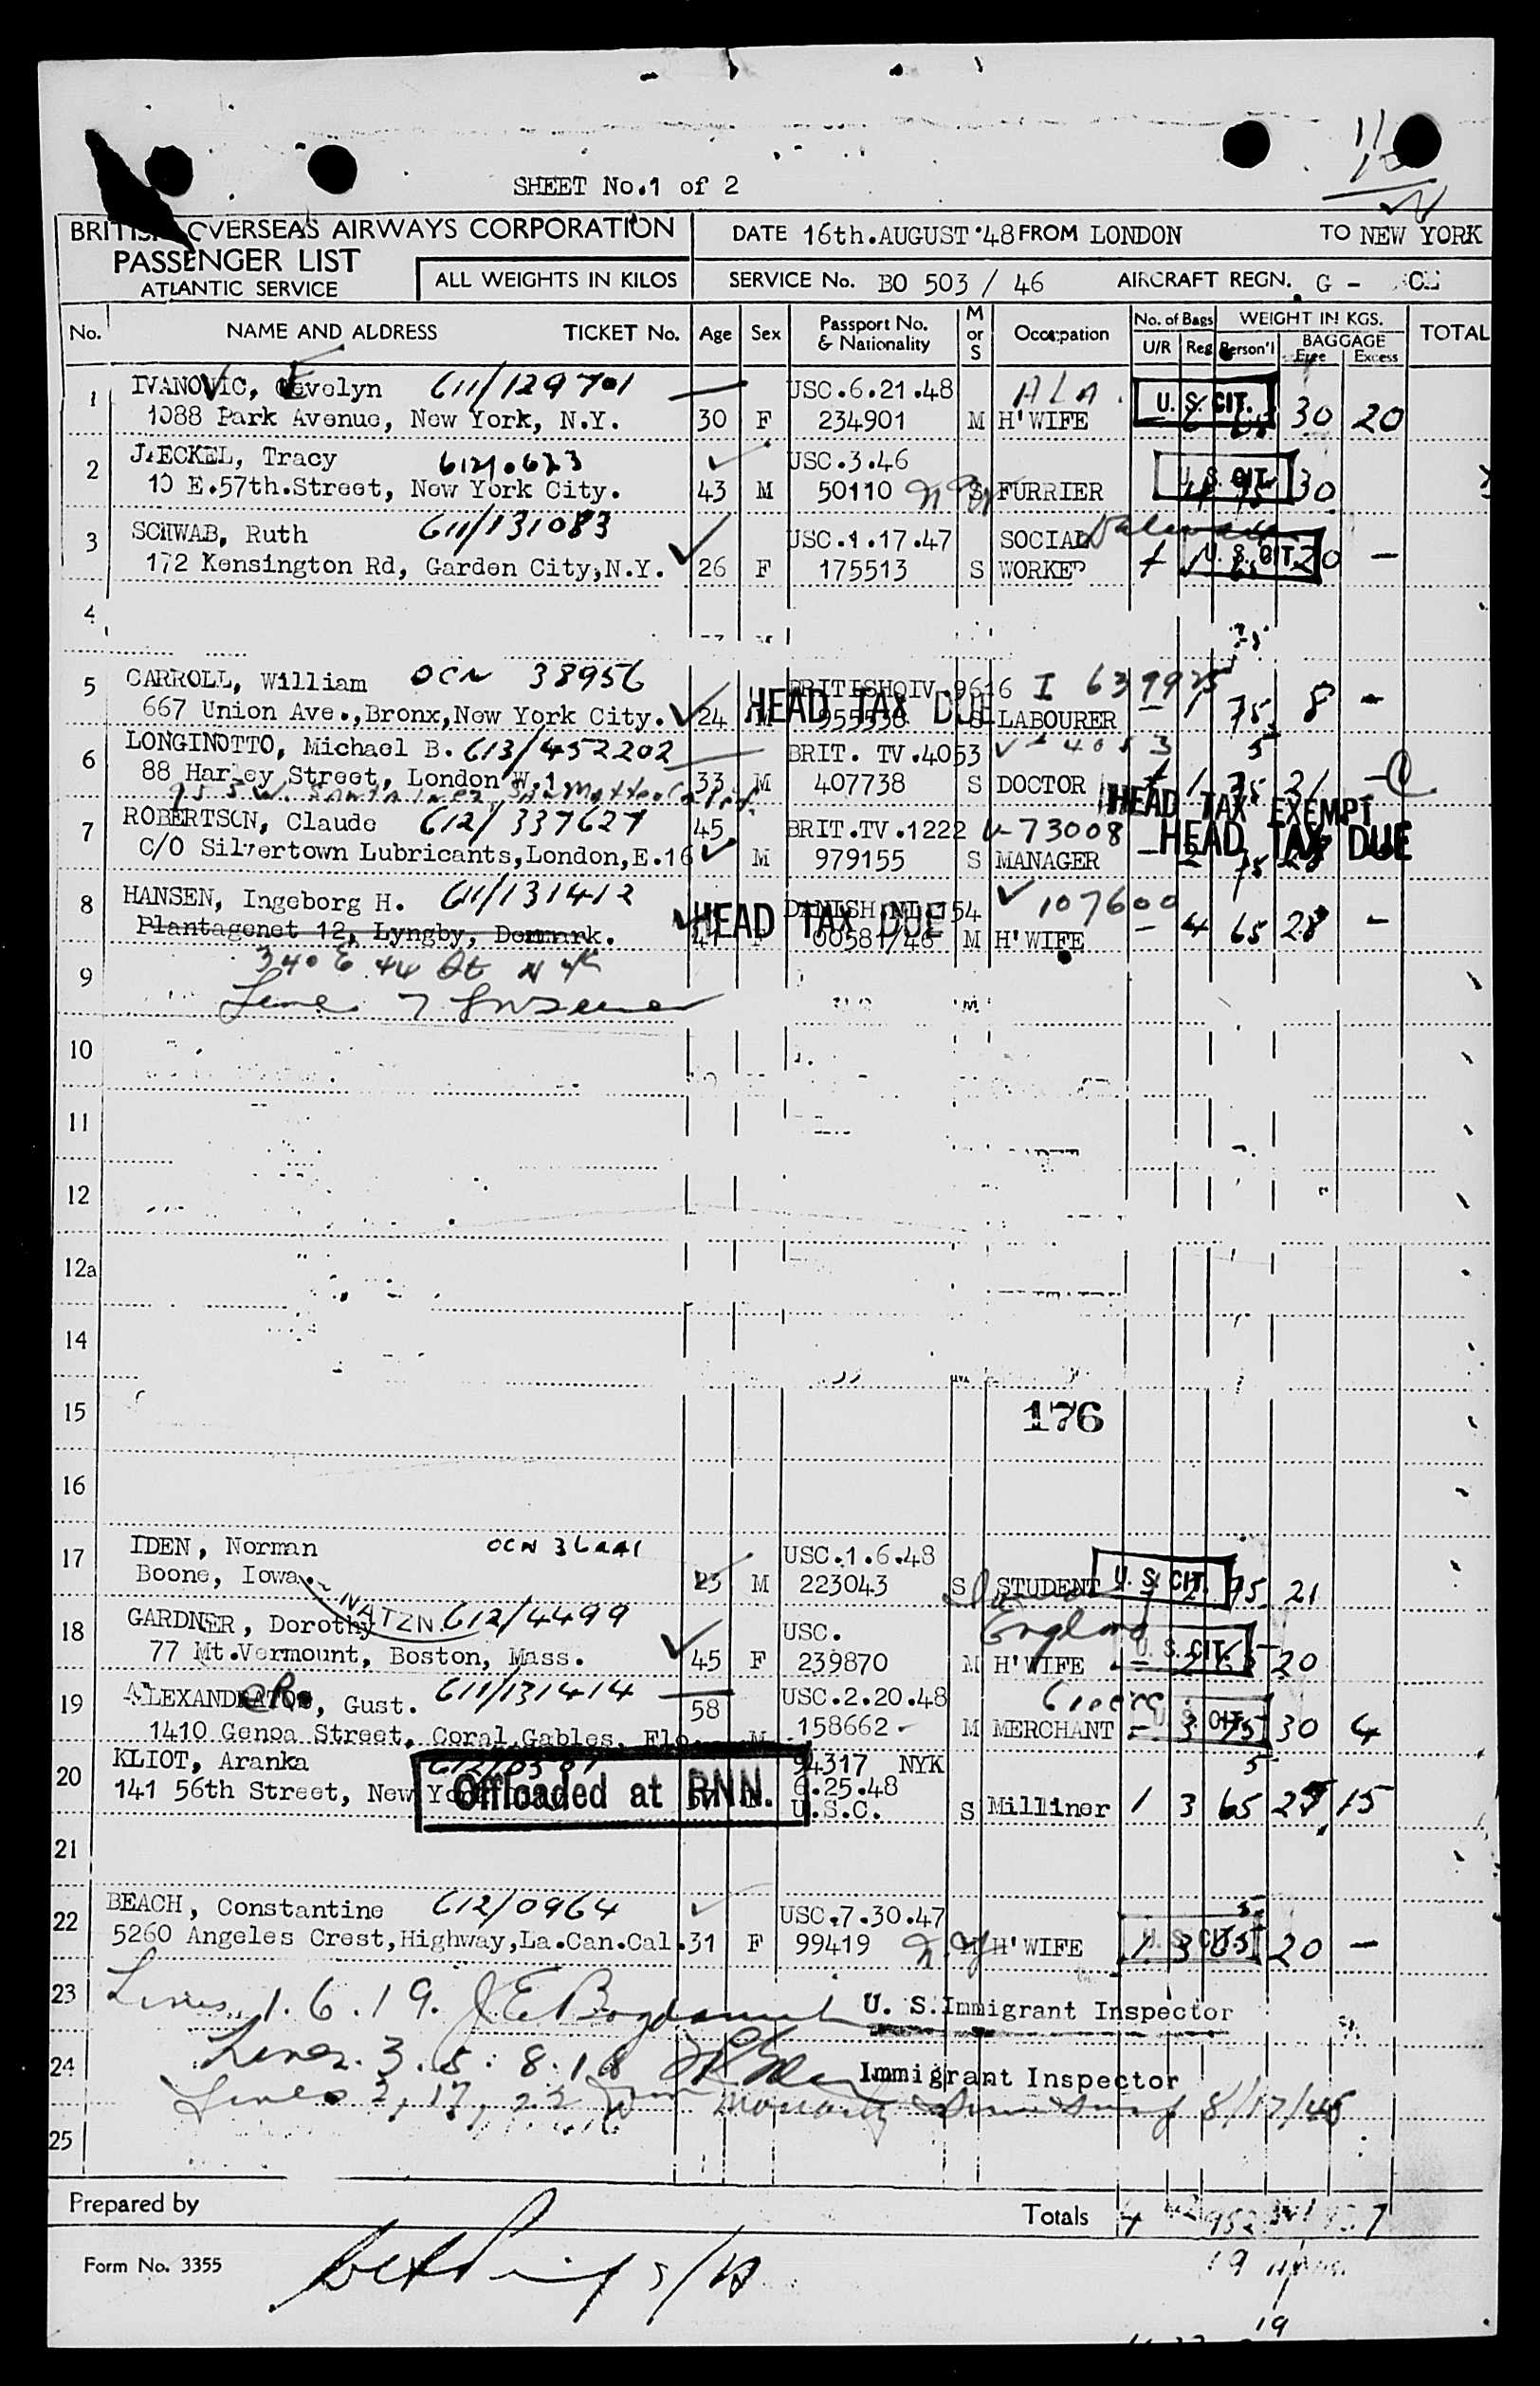 SHEET No.1 of 2
BRITISH OVERSEAS AIRWAYS CORPORATION
PASSENGER LIST
ATLANTIC SERVICE
ALL WEIGHTS IN KILOS
DATE 16th.AUGUST '48 FROM LONDON TO NEW YORK
SERVICE No. BO 503 / 46 AIRCRAFT REGN. G -
No. NAME AND ADDRESS TICKET No. Age Sex Passport No. & Nationality M or S Occupation No. of Bags U/R Reg WEIGHT IN KGS. Person'l BAGGAGE Free Excess TOTAL
1 IVANOVIC, 611/129701 USC.6.21.48 ALA. U. S. CIT.
1088 Park Avenue, New York, N.Y. 30 F 234901 M H'WIFE 30 20
2 JAECKEL, Tracy USC.3.46
10 E.57th.Street, New York City. 43 M 50110 S FURRIER U. S. CIT. 30
3 SCHWAB, Ruth 611/131083 USC.1.17.47 SOCIAL
172 Kensington Rd, Garden City, N.Y. 26 F 175513 S WORKER U. S. CIT. 20 -
4
5 CARROLL, William OCN 38956 BRITISH QIV.9616 I
667 Union Ave.,Bronx,New York City. 24 M HEAD TAX DUE 955538 S LABOURER - 1 75 8 -
6 LONGINOTTO, Michael B. 613/452202 BRIT. TV.4053 4053 5
88 Harley Street, London W.1 33 M 407738 S DOCTOR 1 75 21 -
HEAD TAX EXEMPT
7 ROBERTSON, Claude 612/337627 45 BRIT.TV.1222 V-73008
C/O Silvertown Lubricants,London,E.16 M 979155 S MANAGER HEAD TAX DUE
8 HANSEN, Ingeborg H. 611/131412 DANISH NI.154 107600
Plantagenet 12, Lyngby, Denmark. HEAD TAX DUE F 00581/48 M H'WIFE - 4 65 28 -
340 E 44 St N Yk
9
10
11
12
12a
14
15 176
16
17 IDEN, Norman OCN USC.1.6.48
Boone, Iowa. 23 M 223043 S STUDENT U. S. CIT. 75 21
NATZN.
18 GARDNER, Dorothy 612/4499 USC. England
77 Mt.Vermount, Boston, Mass. 45 F 239870 M H'WIFE U. S. CIT. 20
19 Gust. 611/131414 58 USC.2.20.48 Greece
1410 Genoa Street, Coral Gables, Flo. M 158662 M MERCHANT - 3 U. S. CIT. 75 30 4
20 KLIOT, Aranka 94317 NYK 5
141 56th Street, New York Offloaded at RNN. 6.25.48
U.S.C. S Milliner 1 3 65 15
21
22 BEACH, Constantine 612/0964 USC.7.30.47 5
5260 Angeles Crest,Highway,La.Can.Cal. 31 F 99419 N.Y. H'WIFE U. S. CIT. 1 3 65 20 -
23 Lines 1. 6. 19. U. S.Immigrant Inspector
24 Lines. 3. 5. 8. 18 Immigrant Inspector
Lines 2, 17, 22 Moriarty 8/17/48
25
Prepared by Totals
Form No. 3355
19